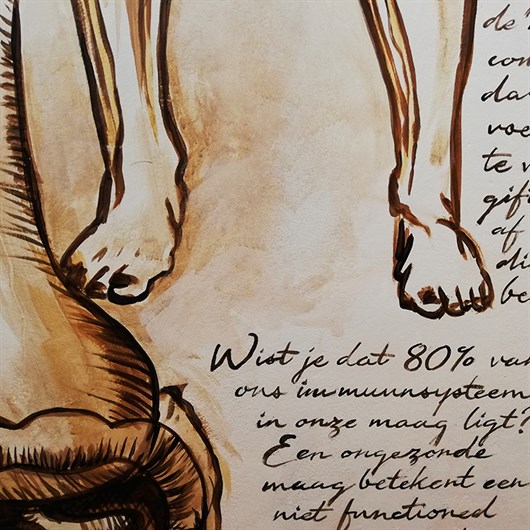 de
con
da
voe
te
gif
af
di
be
Wist je dat 80% van
ons immuunsysteem
in onze maag ligt?
Een ongezonde
maag betekent een
niet functioned